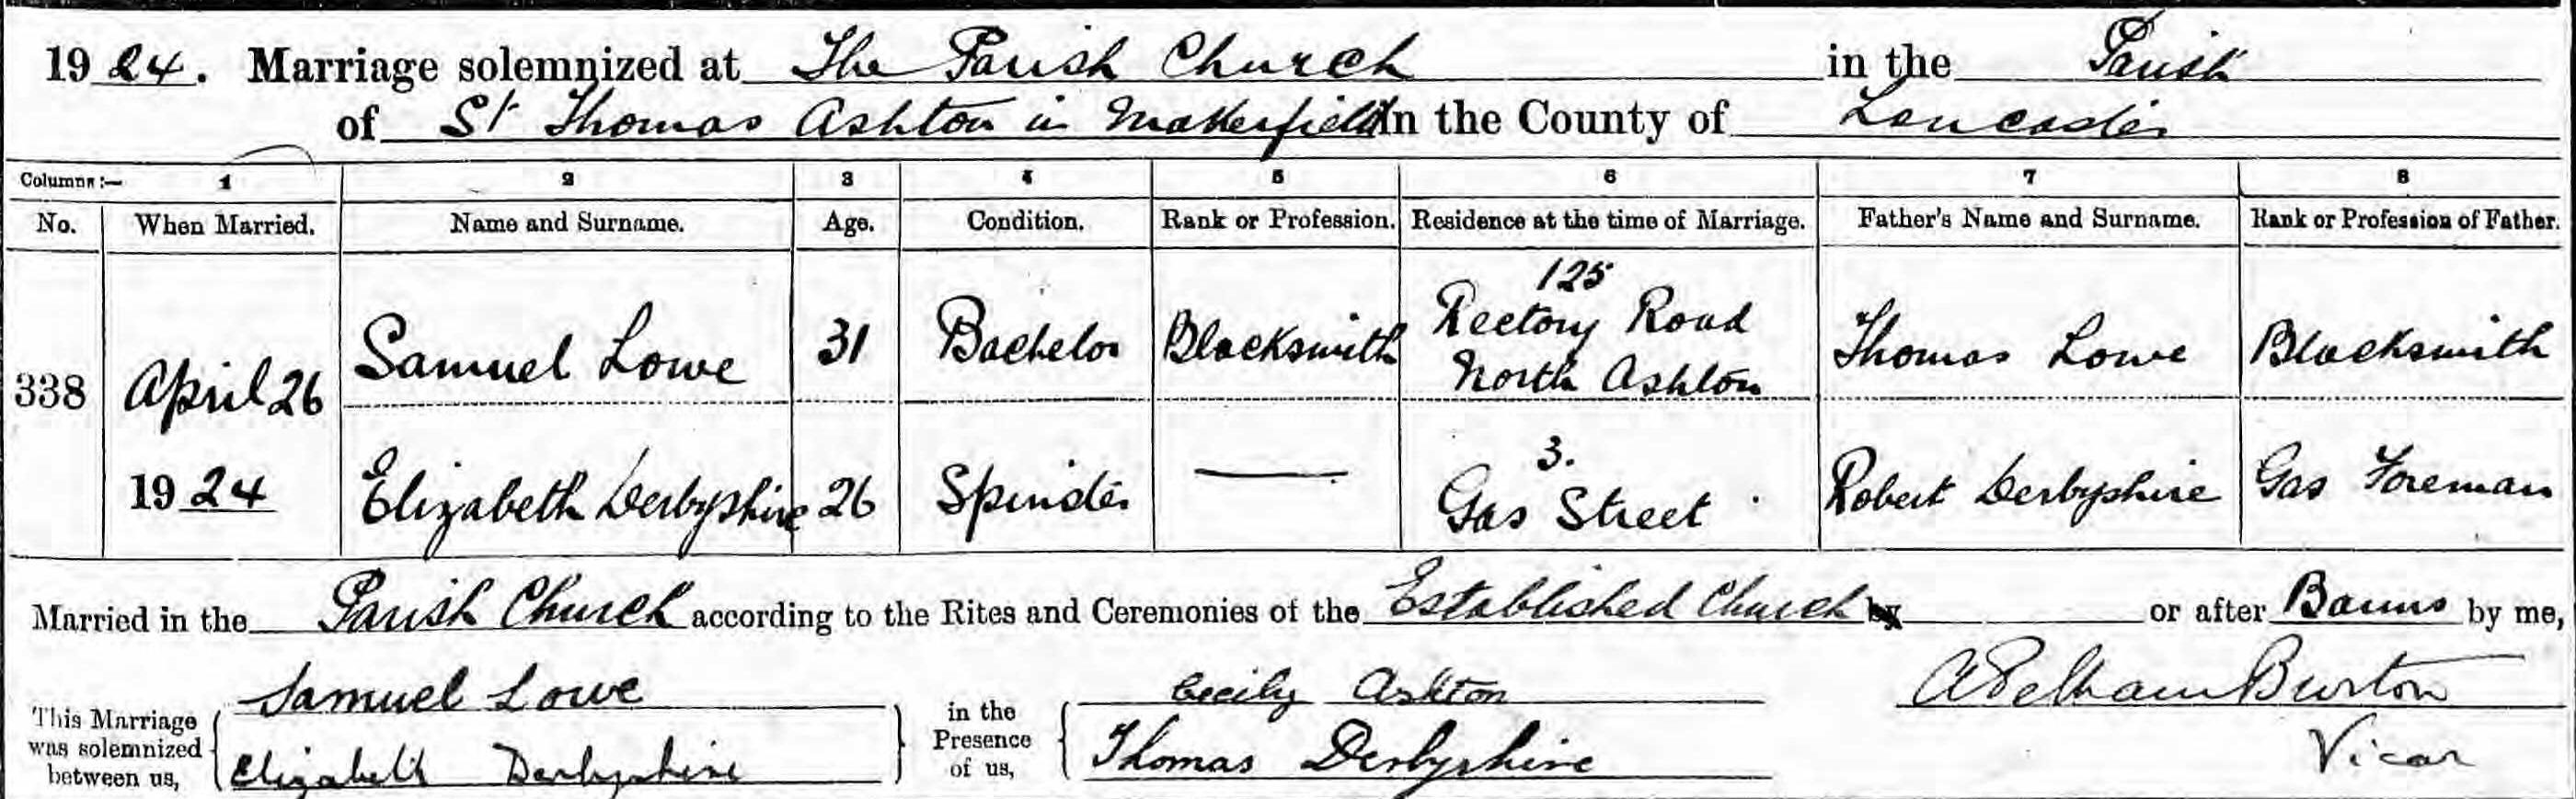 1924. Marriage solemnized at The Parish Church in the Parish
of St Thomas Ashton in Makerfield in the County of Lancaster
Columns:— 1 2 3 4 5 6 7 8
No. When Married. Name and Surname. Age. Condition. Rank or Profession. Residence at the time of Marriage. Father's Name and Surname. Rank or Profession of Father.
338 April 26 Samuel Lowe 31 Bachelor Blacksmith 125 Rectory Road North Ashton Thomas Lowe Blacksmith
1924 Elizabeth Derbyshire 26 Spinster — 3. Gas Street Robert Derbyshire Gas Foreman
Married in the Parish Church according to the Rites and Ceremonies of the Established Church by or after Banns by me,
This Marriage was solemnized between us, Samuel Lowe in the Presence of us, Cecily Ashton A Pelham Burton
Elizabeth Derbyshire Thomas Derbyshire Vicar